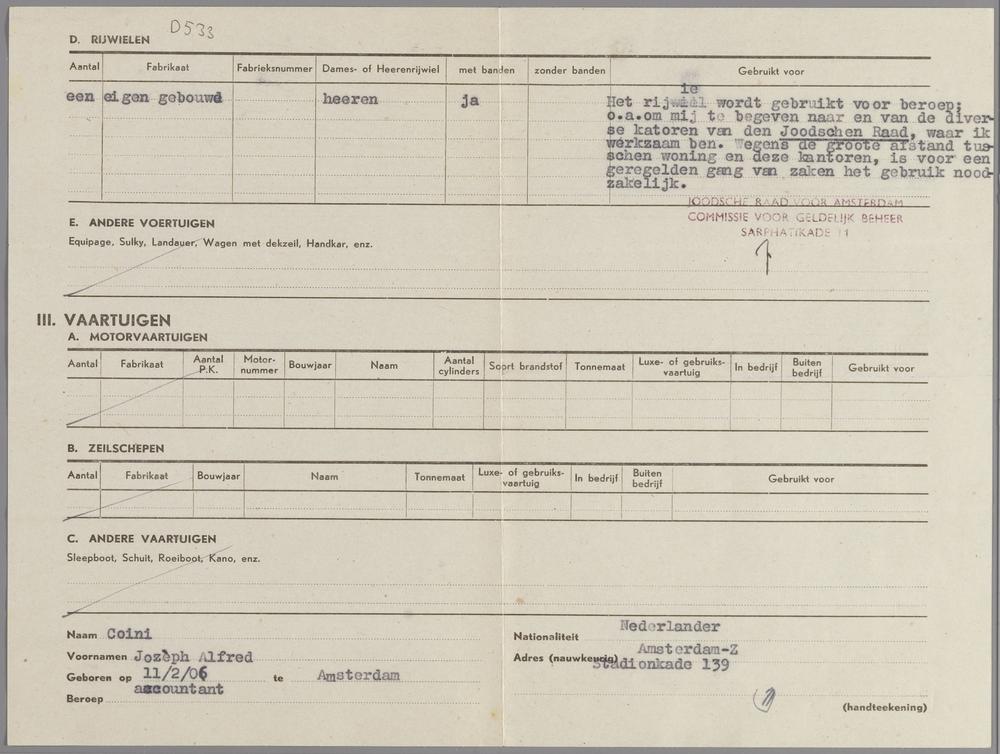 D533
D. RIJWIELEN
Aantal Fabrikaat Fabrieksnummer Dames- of Heerenrijwiel met banden zonder banden Gebruikt voor
ie
een eigen gebouwd heeren ja Het rijwiel wordt gebruikt voor beroep;
o.a.om mij te begeven naar en van de diver-
se katoren van den Joodschen Raad, waar ik
werkzaam ben. Wegens de groote afstand tus-
schen woning en deze kantoren, is voor een
geregelden gang van zaken het gebruik nood-
zakelijk.
JOODSCHE RAAD VOOR AMSTERDAM
COMMISSIE VOOR GELDELIJK BEHEER
SARPHATIKADE 11
E. ANDERE VOERTUIGEN
Equipage, Sulky, Landauer, Wagen met dekzeil, Handkar, enz.
III. VAARTUIGEN
A. MOTORVAARTUIGEN
Aantal Fabrikaat Aantal P.K. Motor-nummer Bouwjaar Naam Aantal cylinders Soort brandstof Tonnemaat Luxe- of gebruiks-vaartuig In bedrijf Buiten bedrijf Gebruikt voor
B. ZEILSCHEPEN
Aantal Fabrikaat Bouwjaar Naam Tonnemaat Luxe- of gebruiks-vaartuig In bedrijf Buiten bedrijf Gebruikt voor
C. ANDERE VAARTUIGEN
Sleepboot, Schuit, Roeiboot, Kano, enz.
Naam Coini
Voornamen Jozèph Alfred
Geboren op 11/2/06 te Amsterdam
Beroep accountant
Nationaliteit Nederlander
Amsterdam-Z
Adres (nauwkeurig) Stadionkade 139
(handteekening)